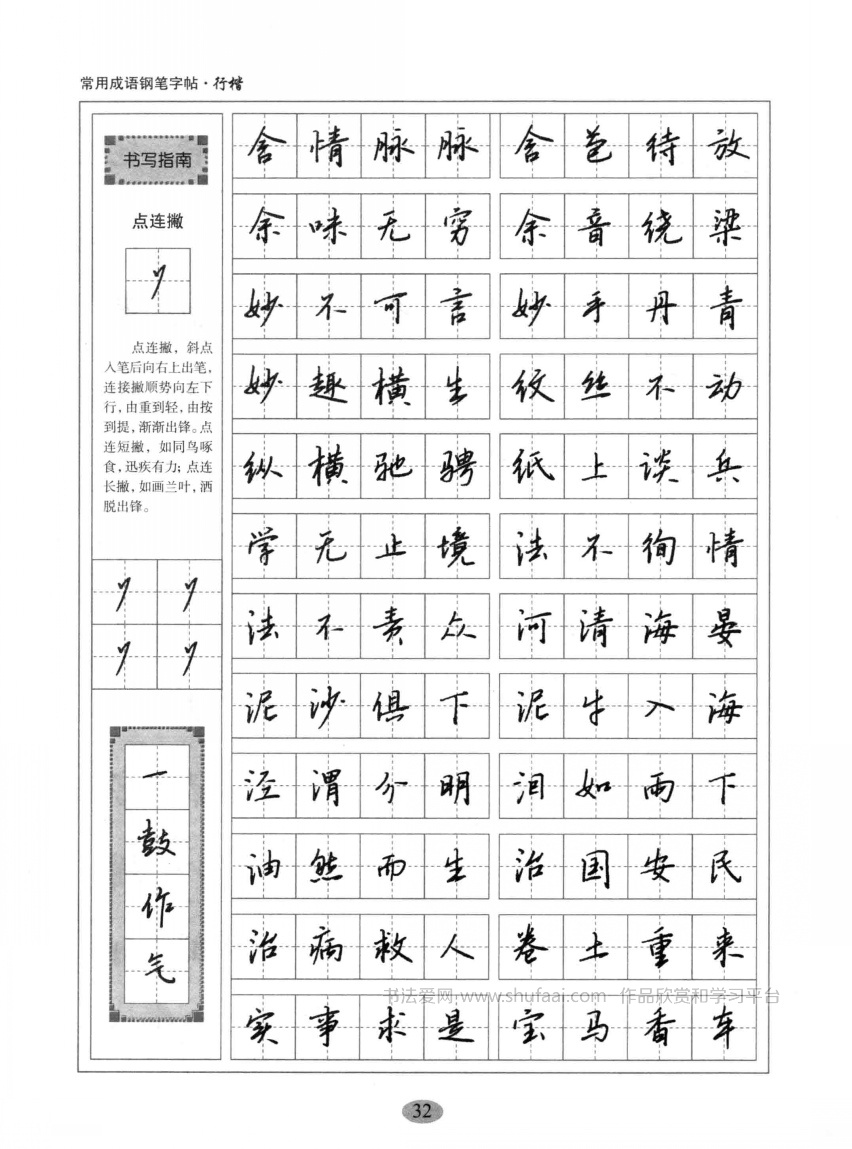 常用成语钢笔字帖·行楷
书写指南
点连撇
点连撇，斜点
入笔后向右上出笔，
连接撇顺势向左下
行，由重到轻，由按
到提，渐渐出锋。点
连短撇，如同鸟啄
食，迅疾有力；点连
长撇，如画兰叶，洒
脱出锋。
一
鼓
作
气
含情脉脉 含苞待放
余味无穷 余音绕梁
妙不可言 妙手丹青
妙趣横生 纹丝不动
纵横驰骋 纸上谈兵
学无止境 法不徇情
法不责众 河清海晏
泥沙俱下 泥牛入海
泾渭分明 泪如雨下
油然而生 治国安民
治病救人 卷土重来
实事求是 宝马香车
书法爱网 www.shufaai.com 作品欣赏和学习平台
32